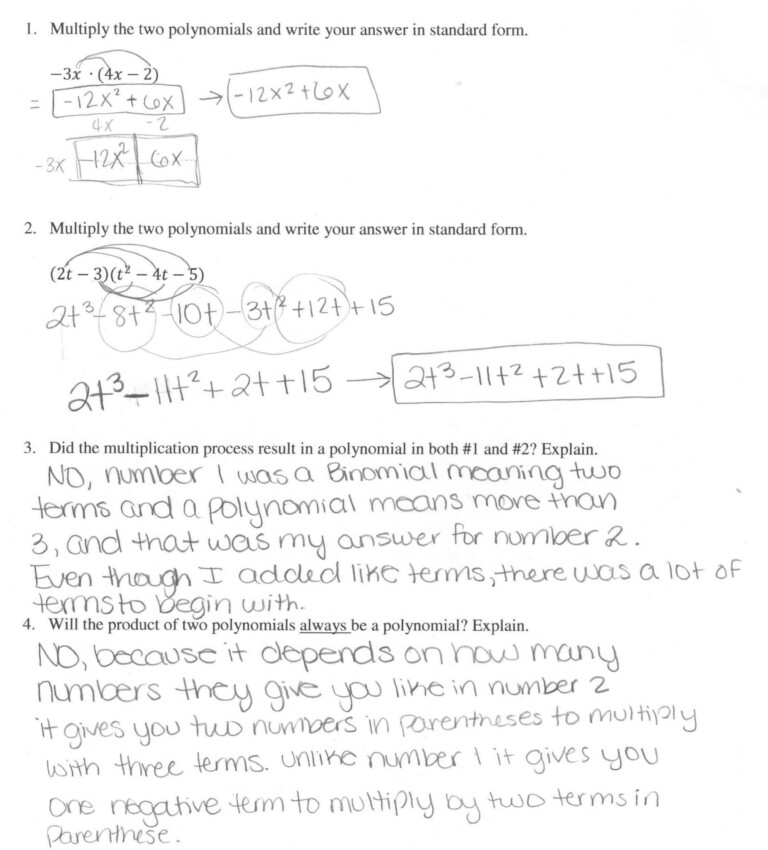 1. Multiply the two polynomials and write your answer in standard form.
−3x · (4x − 2)
= -12x² + 6x → -12x² + 6x
4x -2
-3x -12x² 6x
2. Multiply the two polynomials and write your answer in standard form.
(2t − 3)(t² − 4t − 5)
2t³ - 8t² - 10t - 3t² + 12t + 15
2t³ - 11t² + 2t + 15 → 2t³ - 11t² + 2t + 15
3. Did the multiplication process result in a polynomial in both #1 and #2? Explain.
No, number 1 was a Binomial meaning two
terms and a polynomial means more than
3, and that was my answer for number 2.
Even though I added like terms, there was a lot of
terms to begin with.
4. Will the product of two polynomials always be a polynomial? Explain.
No, because it depends on how many
numbers they give you like in number 2
it gives you two numbers in parentheses to multiply
with three terms. Unlike number 1 it gives you
one negative term to multiply by two terms in
Parenthese.